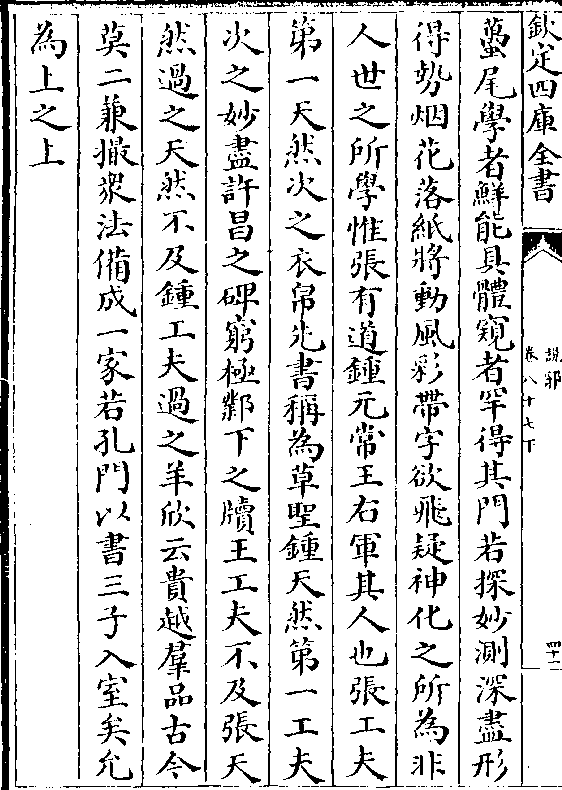 欽定四庫全書
說郛
卷八十七下
四十二
蠆尾學者鮮能具體窺者罕得其門若探妙測深盡形
得勢烟花落紙將動風彩帶字欲飛疑神化之所為非
人世之所學惟張有道鍾元常王右軍其人也張工夫
第一天然次之衣帛先書稱為草聖鍾天然第一工夫
次之妙盡許昌之碑窮極鄴下之牘王工夫不及張天
然過之天然不及鍾工夫過之羊欣云貴越羣品古今
莫二兼撮衆法備成一家若孔門以書三子入室矣允
為上之上